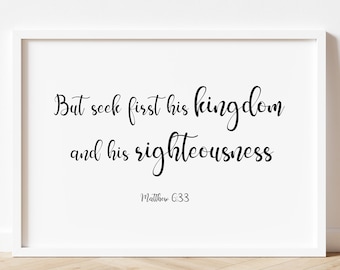 But seek first his kingdom
and his righteousness
Matthew 6:33